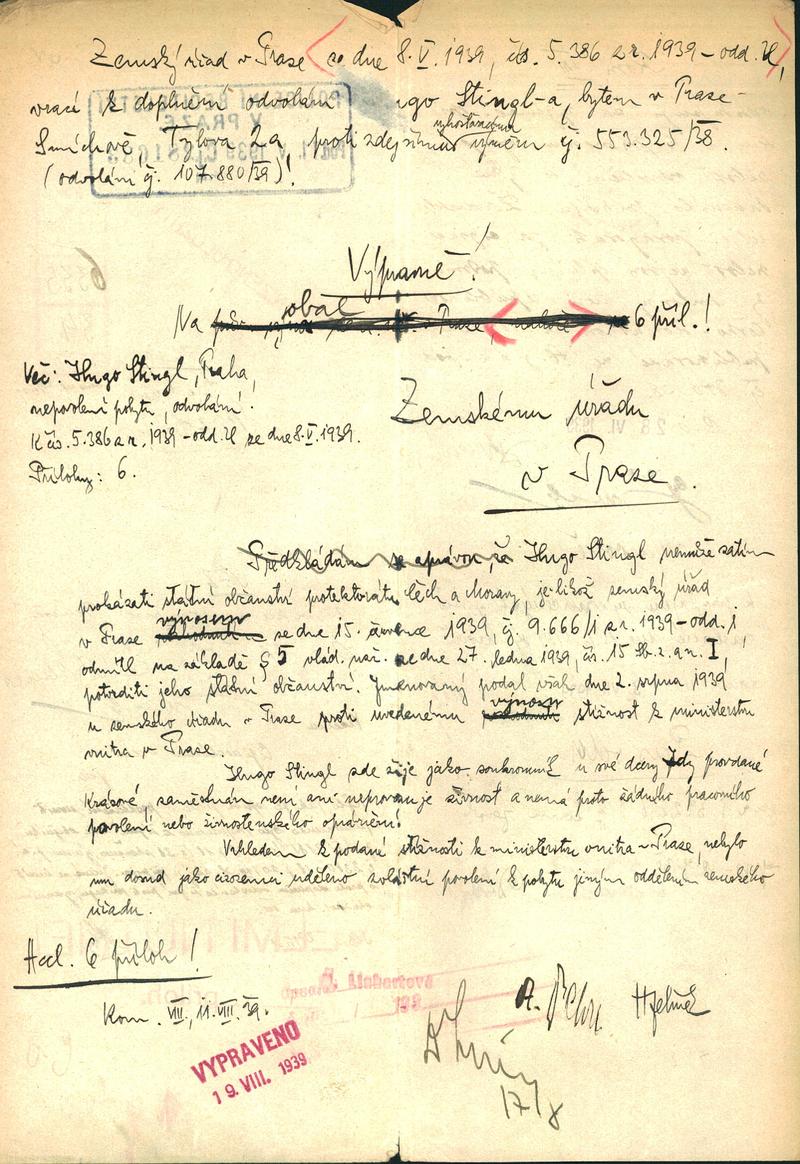 Zemský úřad v Praze ze dne 8.V.1939, čís. 5.386 z r. 1939 – odd. 
vrací k doplnění odvolání Hugo Stingl-a, bytem v Praze-
Smíchově, Tylova 2a, proti zdejšímu vyhošťovacímu výměru čj. 553.325/38.
(odvolání čj. 107.880/39)!
Výpravně!
Na obal 6 příl.!
Věc: Hugo Stingl, Praha,
nepovolení pobytu, odvolání.
K čís. 5.386 z r. 1939 – odd. ze dne 8.V.1939.
Přílohy: 6.
Zemskému úřadu
v Praze.
Předkládám se zprávou, že Hugo Stingl nemůže zatím
prokázati státní občanství protektorátu Čech a Moravy, jelikož zemský úřad
v Praze výnosem ze dne 15. července 1939, čj. 9.666/1 z r. 1939 – odd. 1
odmítl na základě § 5 vlád. nař. ze dne 27. ledna 1939, čís. 15 Sb. z. a n. I,
potvrditi jeho státní občanství. Jmenovaný podal však dne 2. srpna 1939
u zemského úřadu v Praze proti uvedenému výnosu stížnost k ministerstvu
vnitra v Praze.
Hugo Stingl zde žije jako soukromník u své dcery Idy provdané
Krásové, zaměstnán není ani neprovozuje živnost a nemá proto žádného pracovního
povolení nebo živnostenského oprávnění.
Vzhledem k podané stížnosti k ministerstvu vnitra v Praze, nebylo
mu dosud jako cizozemci uděleno zvláštní povolení k pobytu jiným oddělením zemského
úřadu.
Accl. 6 příloh!
Kom. VIII, 11.VIII.39.
Č. Linhartová
VYPRAVENO
19. VIII. 1939
17/8